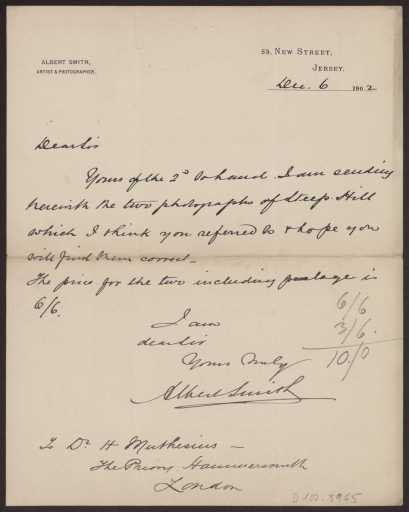 ALBERT SMITH,
ARTIST & PHOTOGRAPHER.
59, NEW STREET,
JERSEY.
Dec. 6 1902
Dear Sir
Yours of the 2d to hand. I am sending
herewith the two photographs of Steep Hill
which I think you referred to & hope you
will find them correct.
The price for the two including postage is
6/6.
I am
dear sir
Yours truly
Albert Smith
6/6
3/6.
10/0
To Dr H Muthesius -
The Priory Hammersmith
London
D 102-5965